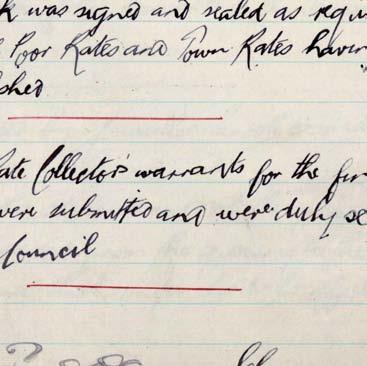 k was signed and sealed as requi
Poor Rates and Town Rates havin
shed
ate Collector's warrants for the fin
were submitted and were duly se
Council